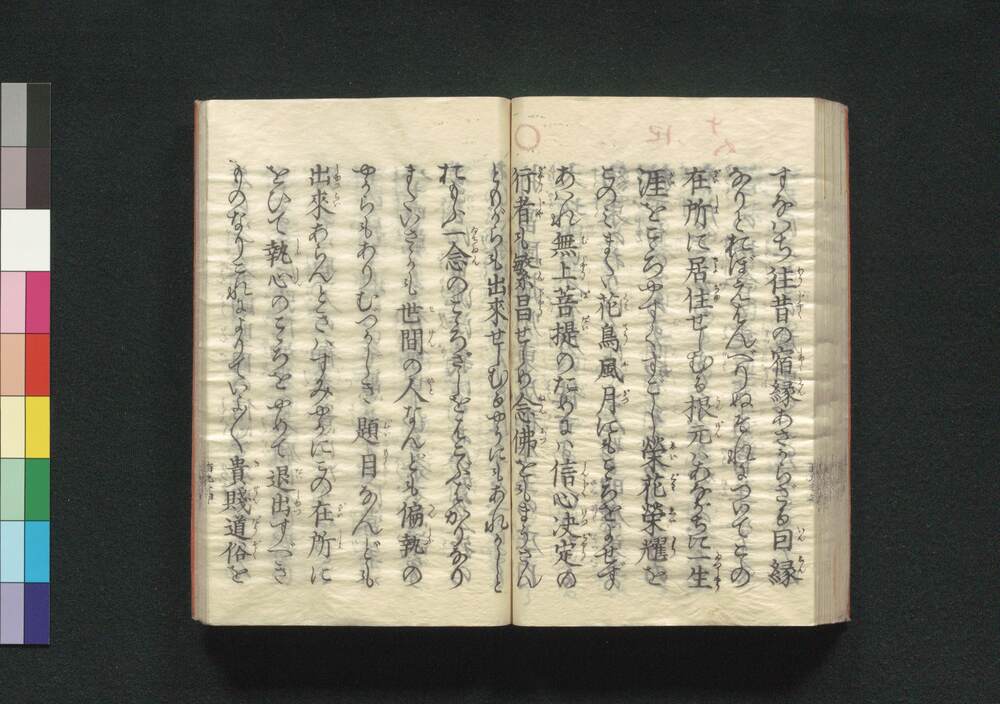 すなはち往昔の宿縁あさからざる因縁
なりとおぼえはんべりぬそれについてこの
在所に居住せしむる根元はあながちに一生
涯をこゝろやすくすごし榮花榮耀を
このみまた花鳥風月にもこゝろをよせず
あはれ無上菩提のためには信心决定の
行者も繁昌せしめ念佛をもまうさん
ともがらも出來せしむるやうにもあれかしと
おもふ一念のこゝろざしをはこぶばかりなり
またいさゝかも世間の人なんども偏執の
やからもありむつかしき題目なんども
出來あらんときはすみやかにこの在所に
をひて執心のこゝろをやめて退出すべき
ものなりこれによりていよ〳〵貴賤道俗を